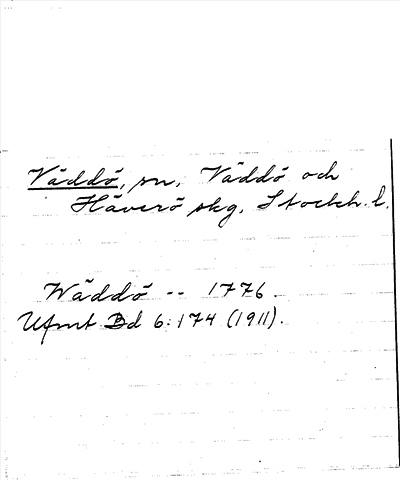 Väddö, sn, Väddö och
Häverö skg, Stockh. l.
Wäddö -- 1776.
Ufmt Bd 6:174 (1911).